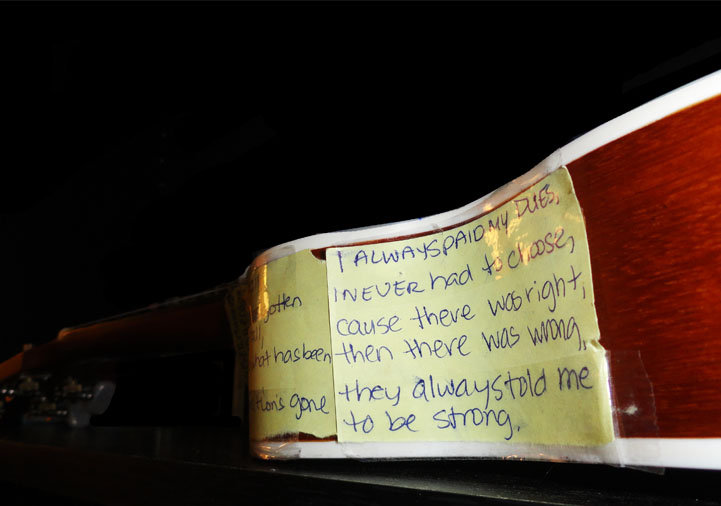 gotten
hat has been
gone
I ALWAYS PAID MY DUES,
I NEVER had to choose,
cause there was right,
then there was wrong,
they always told me
to be strong.